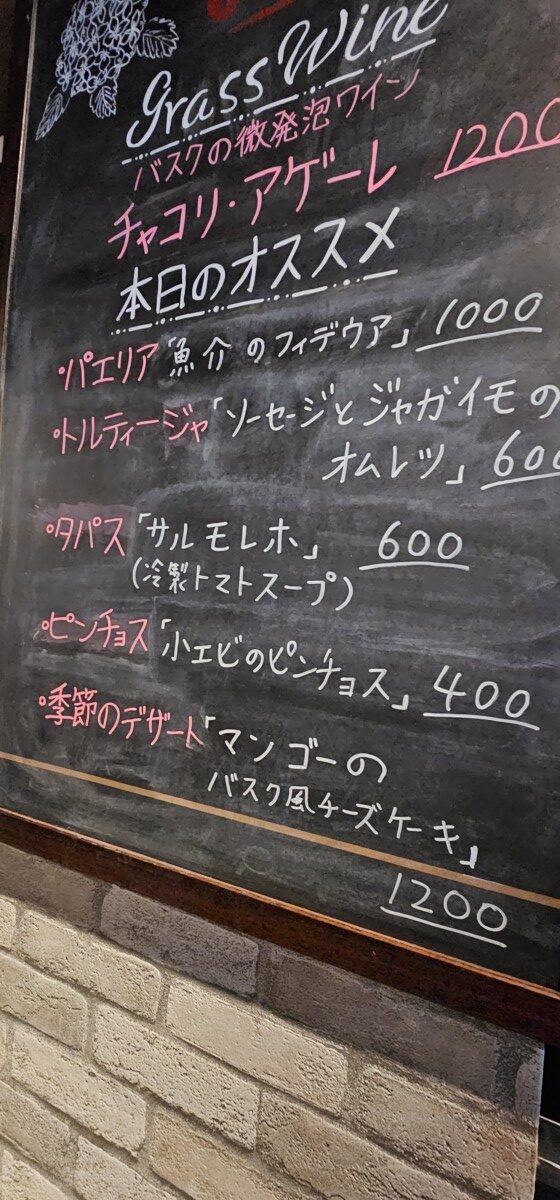 Grass Wine
バスクの微発泡ワイン
チャコリ・アゲーレ 1200
本日のオススメ
・パエリア「魚介のフィデウア」 1000
・トルティージャ「ソーセージとジャガイモの
オムレツ」 600
・タパス「サルモレホ」 600
(冷製トマトスープ)
・ピンチョス「小エビのピンチョス」 400
・季節のデザート「マンゴーの
バスク風チーズケーキ」
1200